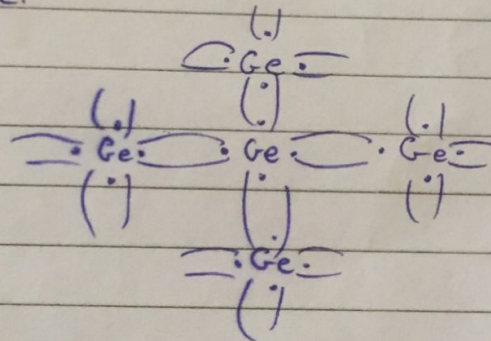 Ge
Ge Ge Ge
Ge